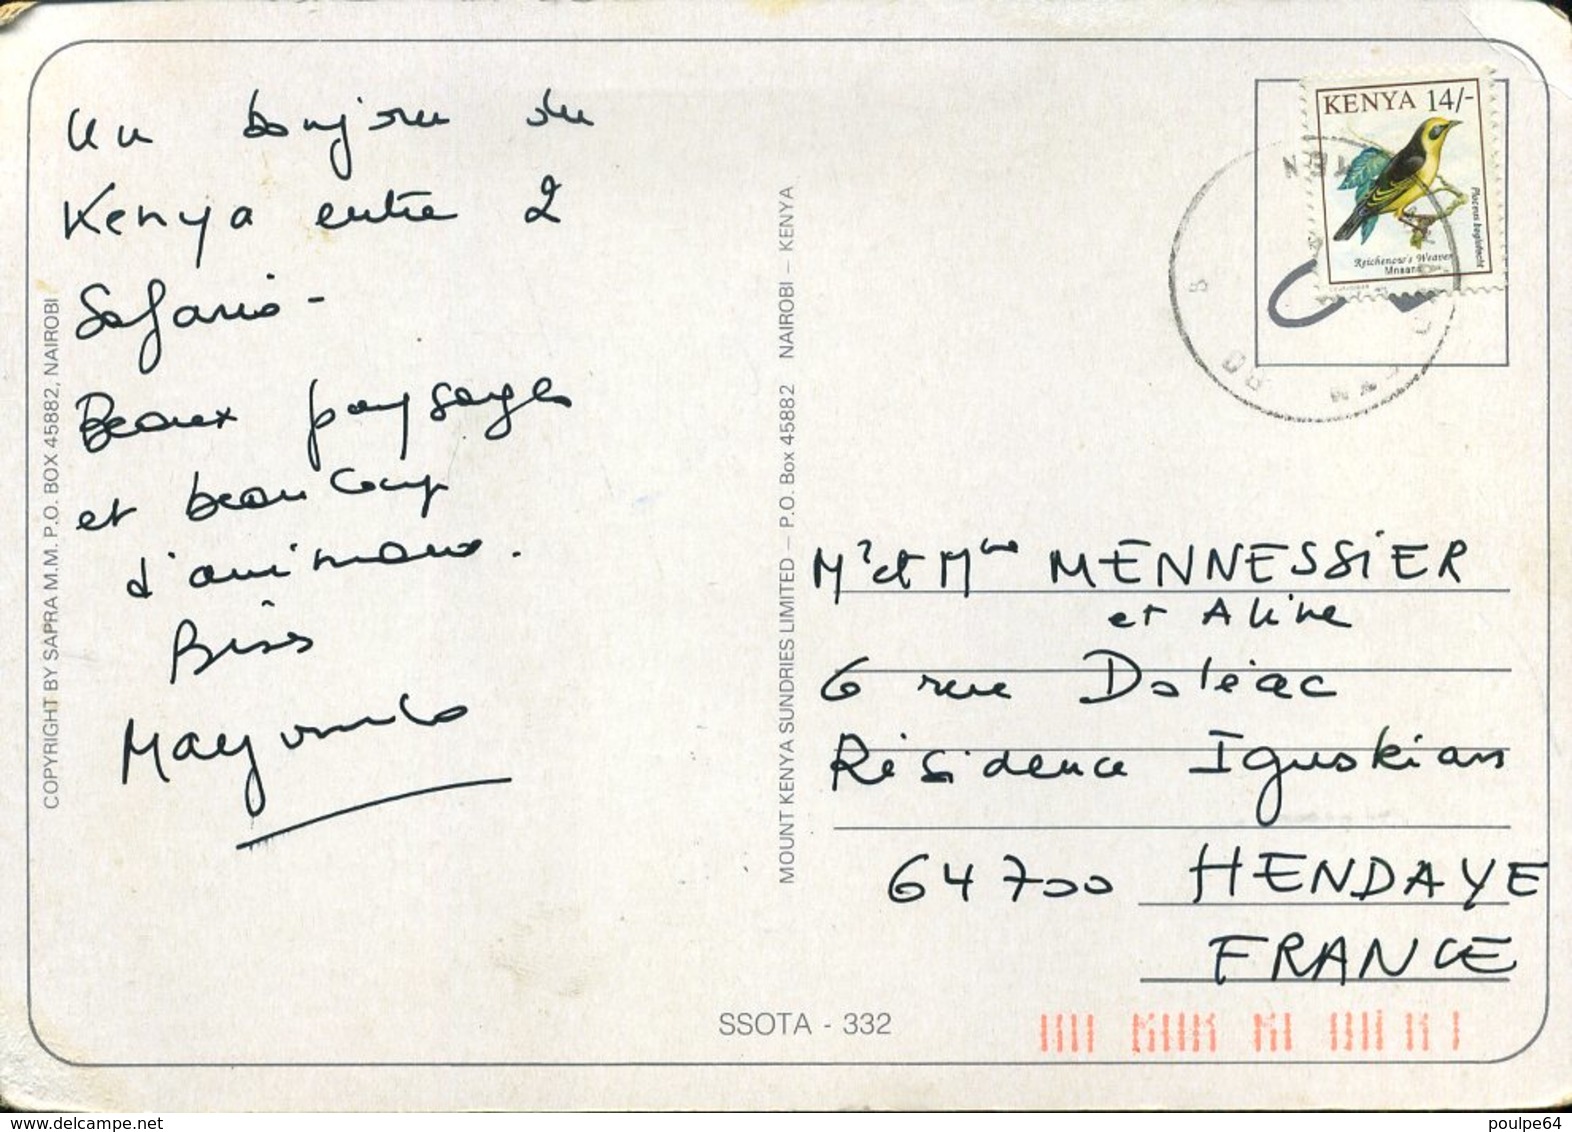 Un bonjour du
Kenya entre 2
Safaris -
Beaux paysages
et beaucoup
d'animaux.
Bises
COPYRIGHT BY SAPRA M.M. P.O. BOX 45882, NAIROBI
MOUNT KENYA SUNDRIES LIMITED — P.O. Box 45882 NAIROBI — KENYA
KENYA 14/-
Reichenow's Weaver
Mnaana
Mr et Mme MENNESSIER
et Aline
6 rue Doléac
Résidence
64700 HENDAYE
FRANCE
SSOTA - 332
www.delcampe.net
poulpe64